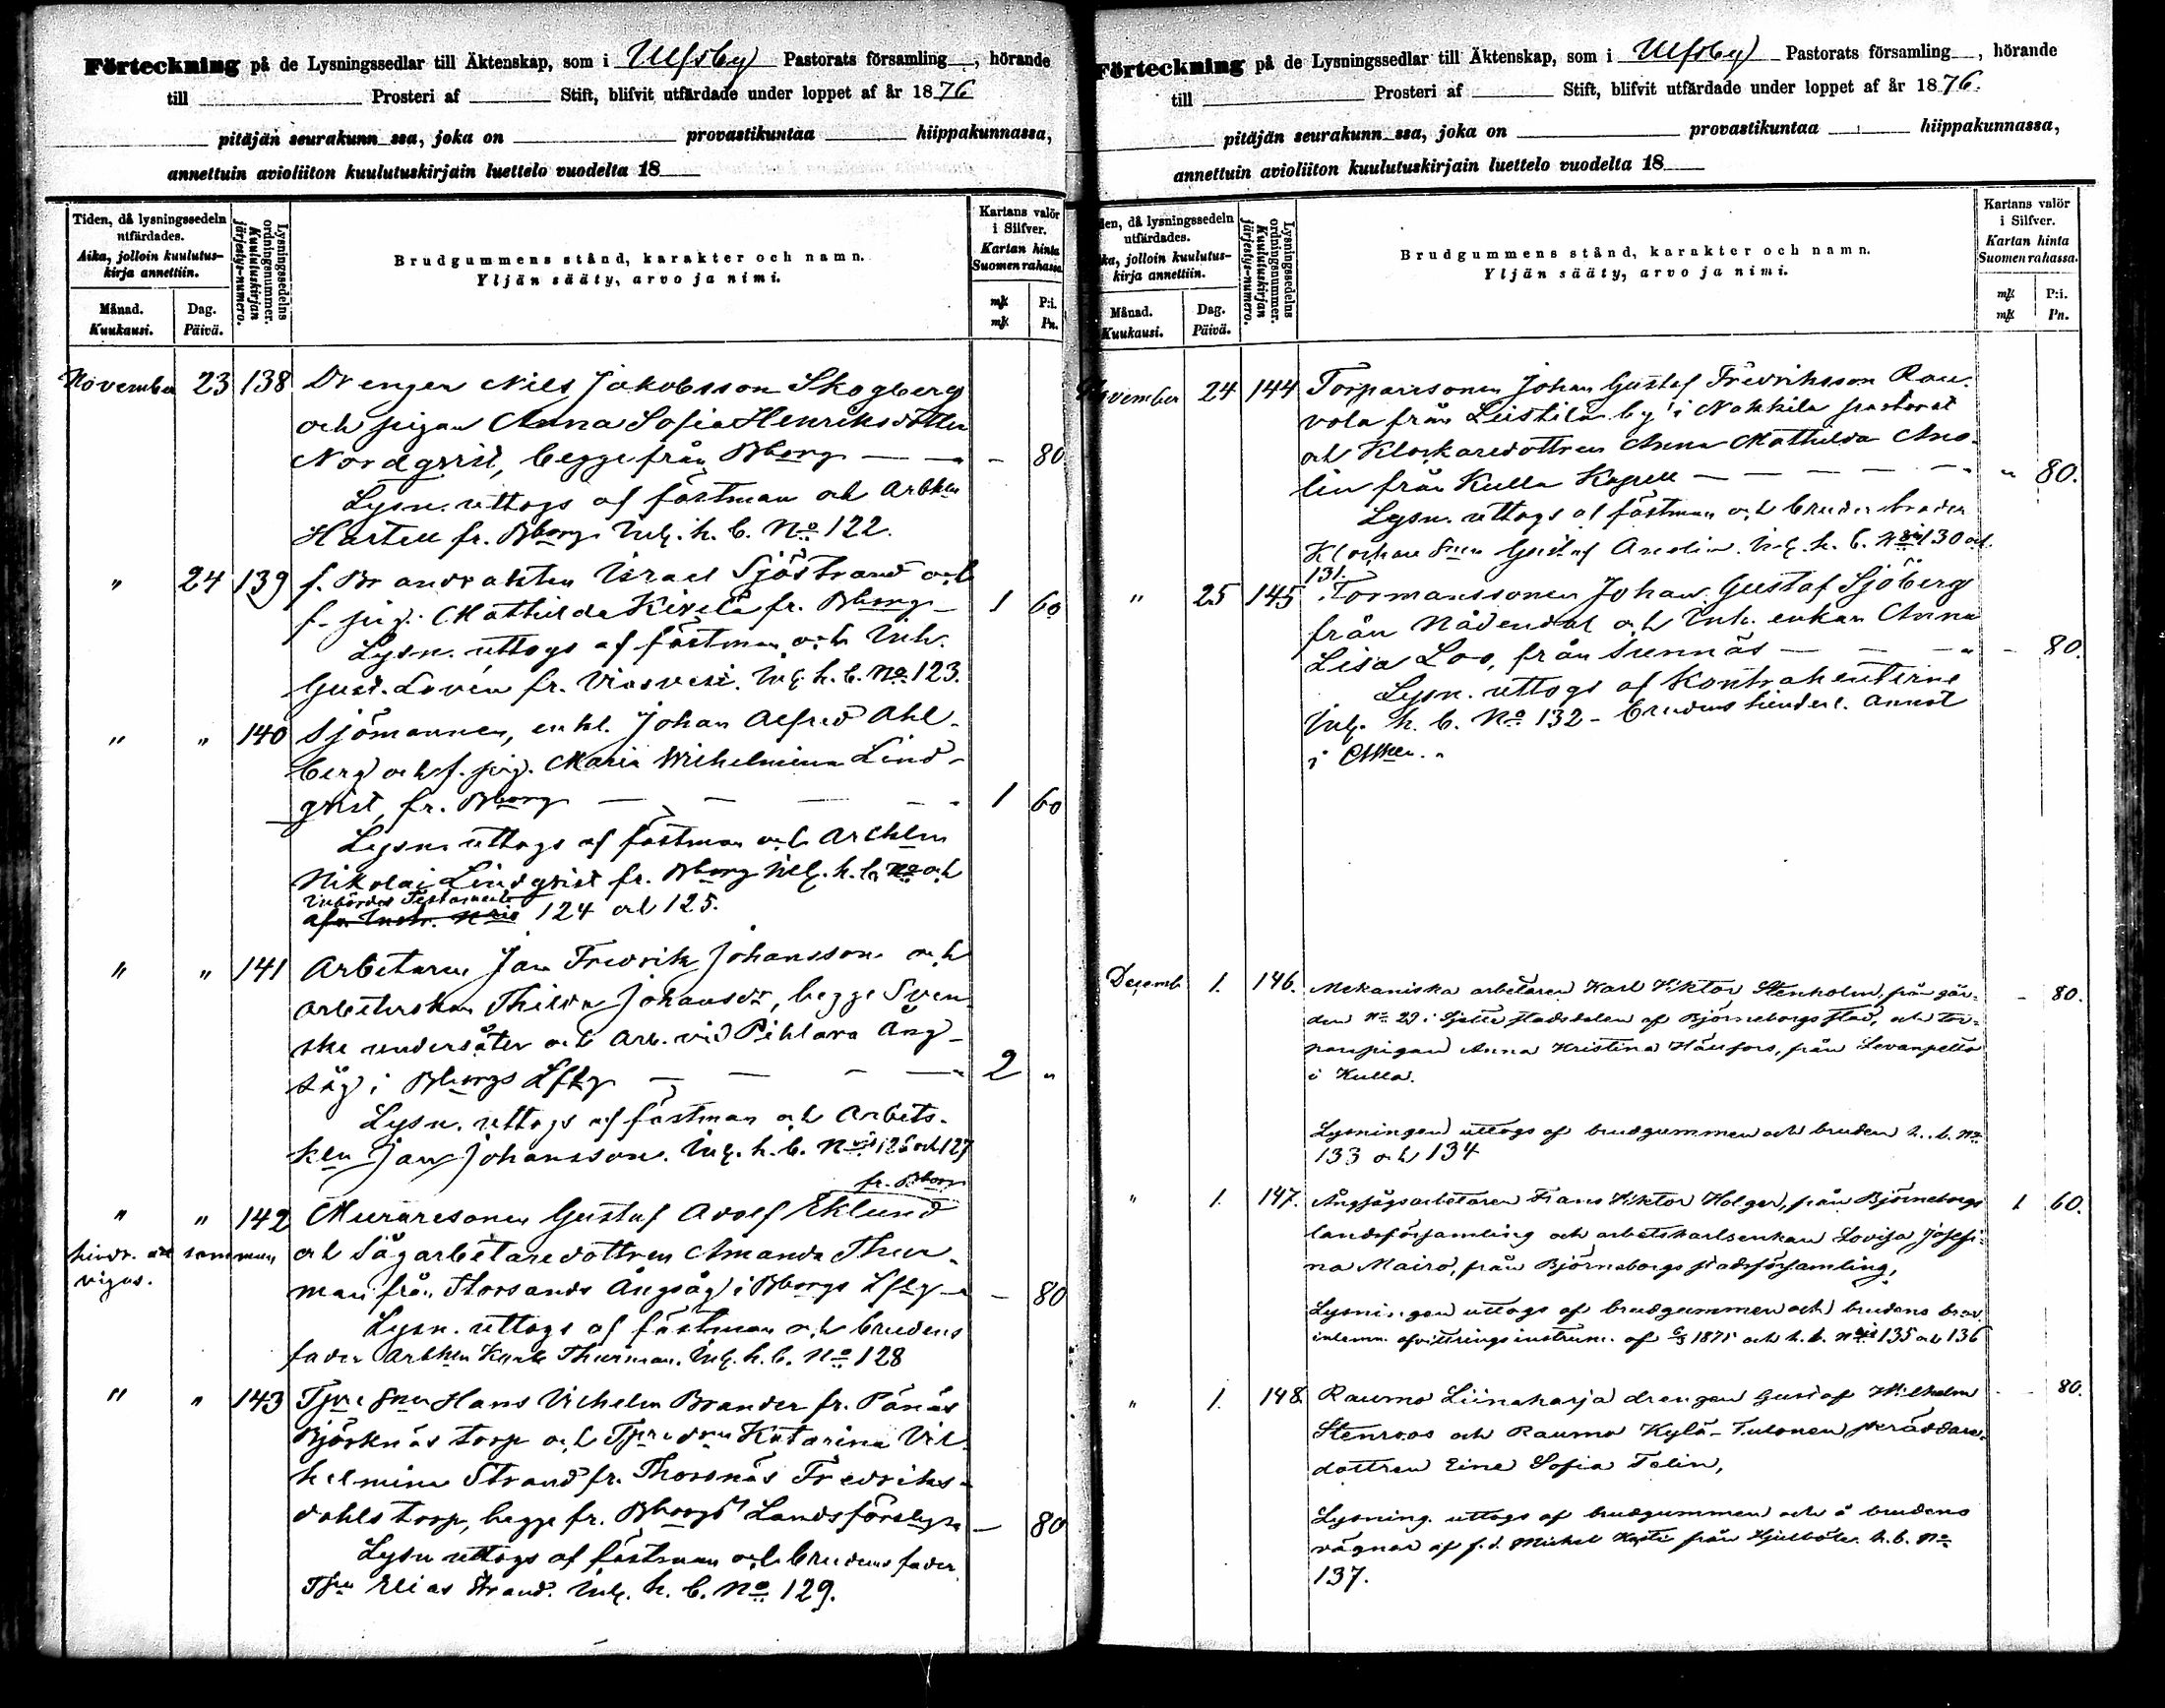 Förteckning på de Lysningssedlar till Äktenskap, som i Ulfsby Pastorats församling, hörande
till Prosteri af Stift, blifvit utfärdade under loppet af år 1876
pitäjän seurakunn ssa, joka on provastikuntaa hiippakunnassa,
annettuin avioliiton kuulutuskirjain luettelo vuodelta 18
Tiden, då lysningssedeln
utfärdades.
Aika, jolloin kuulutus-
kirja annettiin.
Månad.
Kuukausi.
Dag.
Päivä.
Lysningssedelns
ordningsnummer.
Kuulutuskirjan
järjestys-numero.
Brudgummens stånd, karakter och namn.
Yljän sääty, arvo ja nimi.
Kartans valör
i Silfver.
Kartan hinta
Suomen rahassa.
mk P:i.
mk Pn.
November 23 138 Drengen Nils Jakobsson Skogberg
och pigan Anna Sofia Henriksdotter
Nordqvist, begge från Bborg — — - 80
Lysn. uttogs af fästman och Arbkln
Hartell fr. Bborg. Inlg. h. b. No 122.
" 24 139 f. Brandvakten Israel Sjöstrand och
f. pig. Mathilda Kivelä fr. Bborg — 1 60
Lysn. uttogs af fästman och Inh.
Gust. Lovén fr. Viasvesi. Inlg. h. b. No 123.
" " 140 Sjömannen, enkl. Johan Alfred Ahl-
berg och f. pig. Maria Wilhelmina Lind-
qvist, fr. Bborg — — — 1 60
Lysn. uttogs af fästman och Arbkln
Nikolai Lindqvist fr. Bborg Inlg. h. b. No och
Inbördes Testamente
afv. Instr. N:ris 124 och 125.
" " 141 Arbetaren Jan Fredrik Johansson och
arbeterskan Thilda Johansdr, begge Sven-
ske undersåter och Arb. vid Pihlava Ång-
såg i Bborgs Lfsg — — — 2 "
Lysn. uttogs af fästman och Arbets-
kln Jan Johansson. Inlg. h. b. N:ris 126 och 127
fr. Bborg
" " 142 Muraresonen Gustaf Adolf Eklund
hindr. att sammanvigas.
och Sågarbetaredottren Amanda Thur-
man från Storsands Ångsåg i Bborgs Lfsg — - 80
Lysn. uttogs af fästman och brudens
fader Arbkln Karl Thurman. Inlg. h. b. No 128
" " 143 Tpresnen Hans Vilhelm Brander fr. Pånäs
Björknäs torp och Tpredrn Katarina Vil-
helmina Strand fr. Thorsnäs Fredriks-
dahls torp, begge fr. Bborgs Landsförslg — 80
Lysn uttogs af fästman och brudens fader
Tpn Elias Strand. Inlg. h. b. No 129.
Förteckning på de Lysningssedlar till Äktenskap, som i Ulfsby Pastorats församling, hörande
till Prosteri af Stift, blifvit utfärdade under loppet af år 1876.
pitäjän seurakunn ssa, joka on provastikuntaa hiippakunnassa,
annettuin avioliiton kuulutuskirjain luettelo vuodelta 18
den, då lysningssedeln
utfärdades.
ka, jolloin kuulutus-
kirja annettiin.
Månad.
Kuukausi.
Dag.
Päivä.
Lysningssedelns
ordningsnummer.
Kuulutuskirjan
järjestys-numero.
Brudgummens stånd, karakter och namn.
Yljän sääty, arvo ja nimi.
Kartans valör
i Silfver.
Kartan hinta
Suomen rahassa.
mk P:i.
mk Pn.
November 24 144 Torparesonen Johan Gustaf Fredriksson Rau-
vola från Leistilä by i Nakkila pastorat
och Klockaredottren Anna Mathilda Ano-
lin från Kulla Kapell — — — — " 80.
Lysn. uttogs af fästman och brudens broder
Klockare Snen Gustaf Anolin. Inlg. h. b. N:ris 130 och
131.
" 25 145 Formanssonen Johan Gustaf Sjöberg
från Nådendal och Inh. enkan Anna
Lisa Loo, från Sunnäs — — — - 80.
Lysn. uttogs af Kontrahenterne
Inlg. h. b. No 132 - brudens hinderl.
Decemb 1. 146. Mekaniska arbetaren Karl Viktor Stenholm, från går- - 80.
den No 29 i Sjette stadsdelen af Björneborgs stad, och tor-
parepigan Anna Kristina Hänfors, från Levanpelto
i Kulla.
Lysningen uttogs af brudgummen och bruden h. b. No
133 och 134
" 1. 147. Ångsågsarbetaren Frans Viktor Holger, från Björneborgs 1 60.
landsförsamling och arbetskarlsenkan Lovisa Josefi-
na Mairo, från Björneborgs stadsförsamling,
Lysningen uttogs af brudgummen och brudens bror
inlemn. afvittringsinstrum. af 1875 och h. b. N:ris 135 och 136
" 1. 148. Raumo Liinaharja drengen Gustaf Wilhelm - 80.
Stenroos och Raumo Kylä-Tulonen skräddare-
dottren Eina Sofia Telin,
Lysning. uttogs af brudgummen och å brudens
vägnar af f.d. Michel från Hjulböle. h. b. No
137.